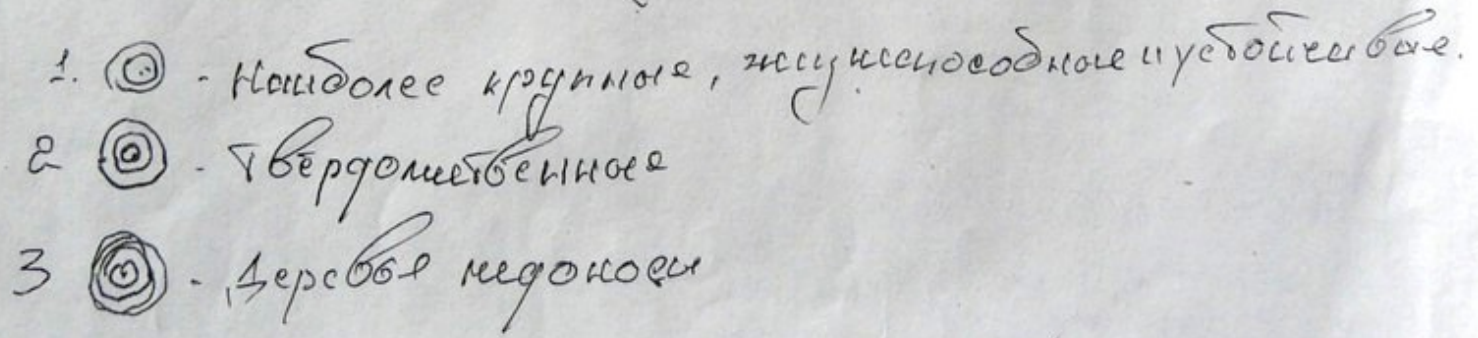 1. - Наиболее крупные, жизнеспособные и устойчивые.
2 - Твёрдолиственные
3 - Деревья недокосы